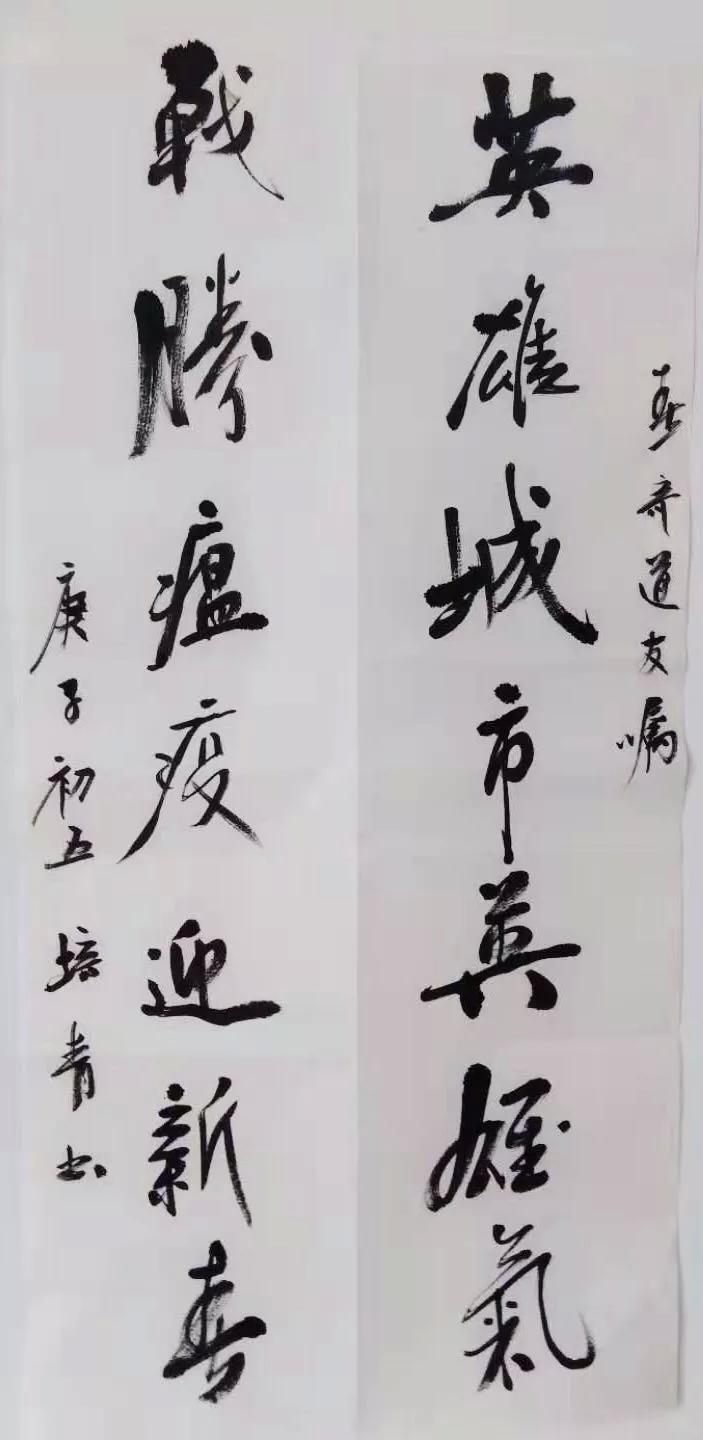 奇道友嘱
英雄城市英雄氣
戰勝瘟疫迎新春
庚子初五 培青书